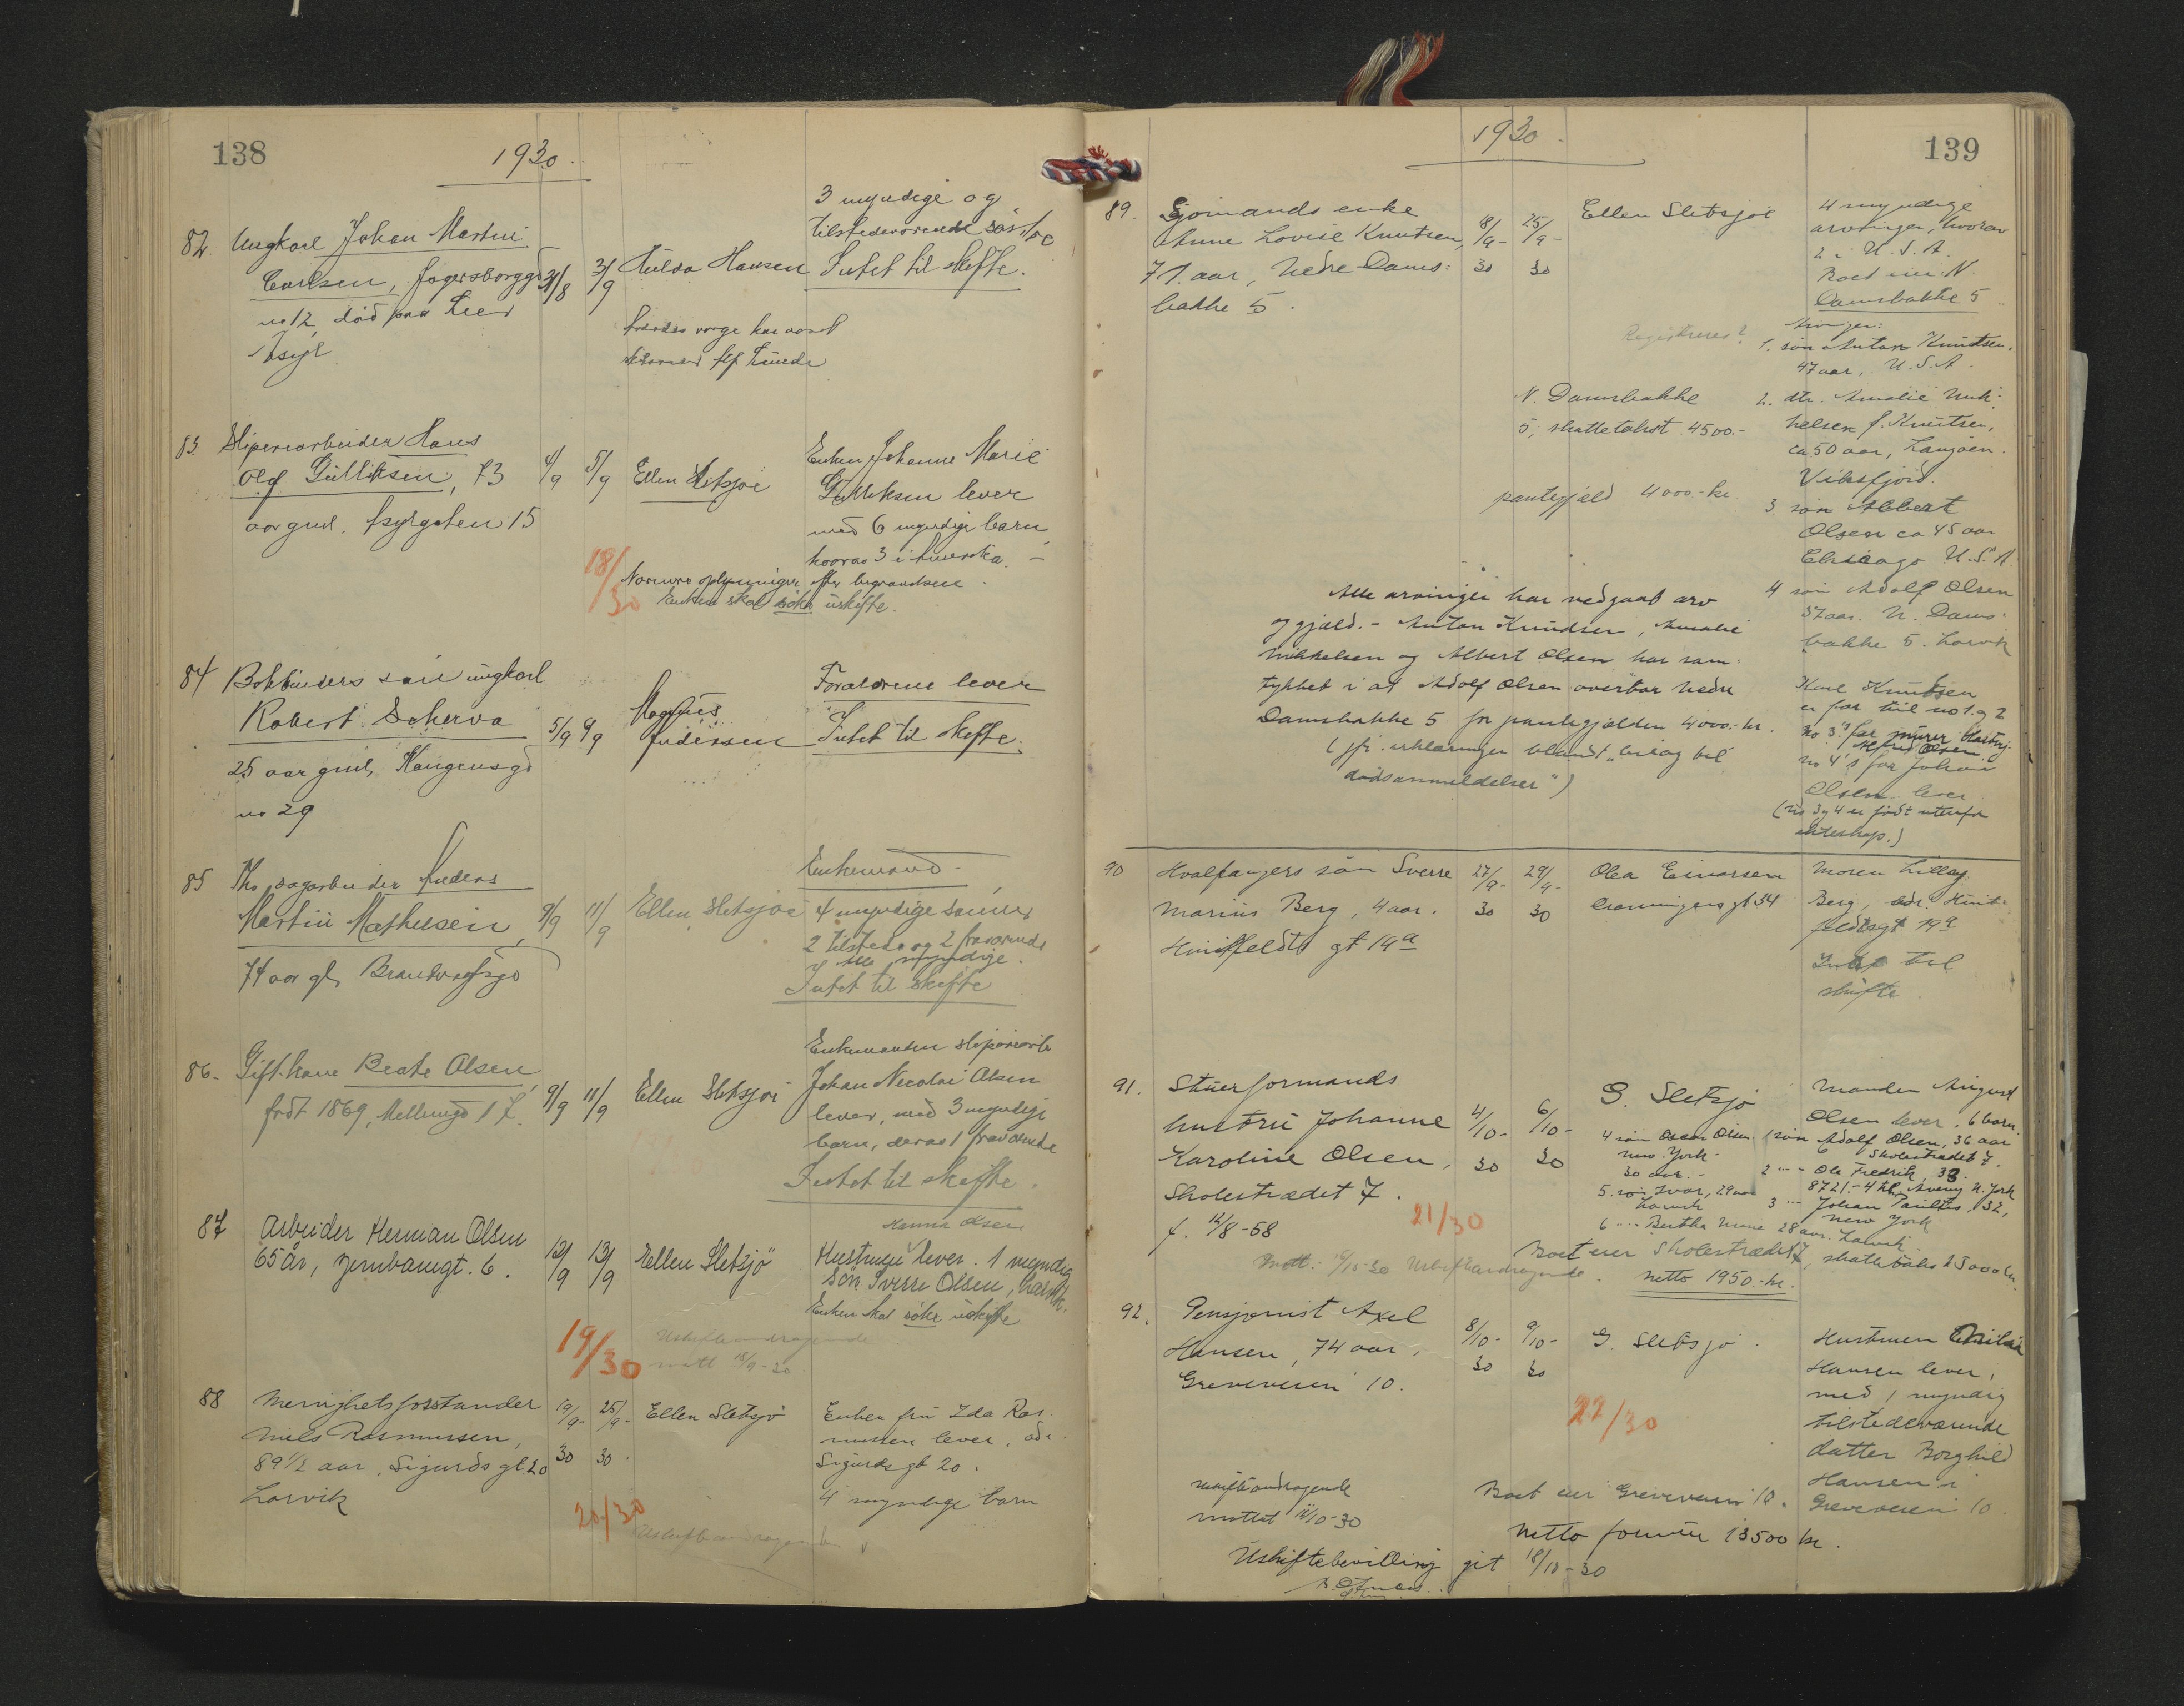 138
1930.
82. Ungkarl Johan Martin
Carlsen, Jegersborggd
no 12, død paa Lier
Asyl
31/8
3/9
Hulda Hansen
3 myndige og
tilstedeværende søstre
Intet til skifte.
83. Sliperiarbeider Hans
Olaf Gulliksen, 73
aar gml. Asylgaten 15
4/9
5/9
Ellen Sletsjøe
Enken Johanne Marie
Gulliksen lever
med 6 myndige barn,
hvorav 3 i Amerika. –
18/30
Nærmere oplysninger efter begravelsen.
Enken skal søke uskifte.
84 Bokbinders søn ungkarl
Robert Scherva
25 aar gml, Kongensgd
no 29
5/9
9/9
Magnus
Andersen
Forældrene lever
Intet til skifte.
85 Fhv sagarbeider Anders
Martin Mathisen,
74 aar gl, Brandvagtsgd
9/9
11/9
Ellen Sletsjøe
Enkemand.
4 myndige sønner
2 tilstede og 2 fraværende
Intet til skifte
86. Gift kone Beate Olsen,
født 1869, Mellemgd 17.
9/9
11/9
Ellen Sletsjøe
Enkemanden sliperiarb
Johan Nicolai Olsen
lever, med 3 myndige
barn, derav 1 fraværende
Intet til skifte.
87 Arbeider Herman Olsen
65 år, Jernbanegt. 6.
12/9
13/9
Ellen Sletsjö
Hanna Olsen
Hustruen lever. 1 myndig
sön Sverre Olsen, Larvik.
Enken skal søke uskifte
19/30
Uskifteandragende
mott 18/9-30
88 Menighetsforstander
Niels Rasmussen,
89 1/2 aar. Sigurds gt. 20
Larvik
19/9-30
25/9-30.
Ellen Sletsjø
Enken fru Ida Ras
mussen lever, adr.
Sigurds gt 20.
4 myndige barn
20/30
Uskifteandragende
139
1930.
89. Sjømands enke
Anne Lovise Knutsen,
71. aar, Nedre Dams-
bakke 5.
18/9-30
25/9-30
Ellen Sletsjøe
4 myndige
arvinger, hvorav
2 i U.S.A.
Boet eier N.
Damsbakke 5
Registreres?
Arvinger:
1. søn Anton Knudtsen,
47 aar, U.S.A.
N. Damsbakke
5, skattetakst 4500.-
2. dtr. Amalie Mik-
kelsen f. Knutsen,
ca. 50 aar, Langøen.
Viksfjord.
pantegjæld 4000-kr.
3. søn Albert
Olsen ca. 45 aar
Chicago U.S.A.
4 søn Adolf Olsen
37 aar. N. Dams-
bakke 5. Larvik
Alle arvinger har vedgaat arv
og gjæld. - Anton Knudsen, Amalie
Mikkelsen og Albert Olsen har sam-
tykket i at Adolf Olsen overtar Nedre
Damsbakke 5 for pantegjælden 4000.- kr.
(jfr. erklæringer blandt "bilag til
dødsanmeldelser")
Karl Knudsen
er far til no 1 og 2
No 3's far murer
Alfred Olsen
no 4's far Johan
Olsen lever
(no 3 og 4 er født utenfor
ekteskap.)
90 Hvalfangers søn Sverre
Marius Berg, 4 aar.
Huitfeldts gt 19a
27/9-30
29/9-30
Olea Einarsen
Dronningens gt 34
Moren Lilly
Berg, adr. Huit-
feldtsgt 19a
Intet til
skifte
91. Stuerformands
hustru Johanne
Karoline Olsen,
Skolestrædet 7.
f. 12/8-58
4/10-30
6/10-30
G. Sletsjø
Manden August
Olsen lever, 6 barn.
1 søn Adolf Olsen, 36 aar
Skolestrædet 7.
2 " Ole Fredrik, 33.
8721.-4 th Aveny N. York
3 " Johan Paulus, 32,
New York
4 søn Oscar Olsen
New York -
30 aar. -
5. søn Ivar, 29 aar
Larvik
6 " Bertha Marie 28 aar. Larvik
21/30
Mott. 19/10-30 Uskifteandragende.
Boet eier Skolestrædet 7, skattetakst 5000 kr.
netto 1950-kr.
92. Pensjonist Axel
Hansen, 74 aar,
Greveveien 10.
8/10-30
9/10-30
G. Sletsjø.
Hustruen
Hansen lever,
med 1 myndig
tilstedeværende
datter Borghild
Hansen i
Greveveien 10.
22/30
Uskifteandragende
mottat 14/10-30
Boet eier Greveveien 10.
Netto formue 13500 kr.
Uskiftebevilling git 18/10-30